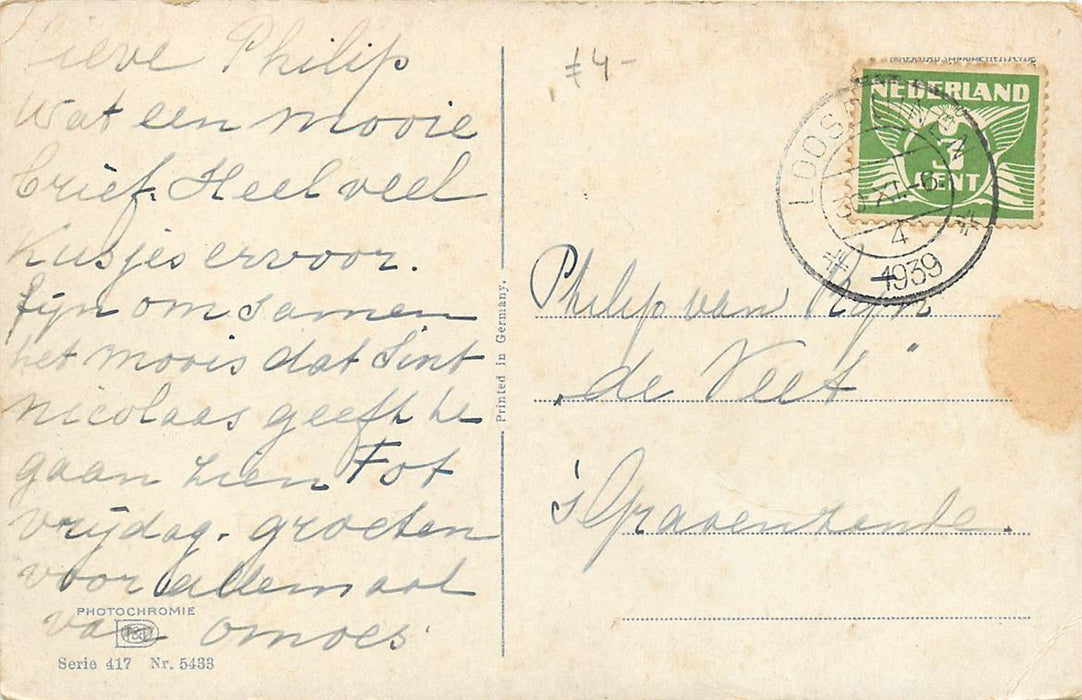 Lieve Philip
Wat een mooie
brief. Heel veel
Kusjes ervoor.
fijn om samen
het moois dat Sint
Nicolaas geeft te
gaan zien Tot
vrijdag. groeten
voor allemaal
van omoes
PHOTOCHROMIE
Serie 417 Nr. 5433
Printed in Germany.
£4-
NEDERLAND
3
CENT
LOOSDUINEN
XI.-6
4
1939
Philip van Rijn
"de Veet"
's Gravenzande.